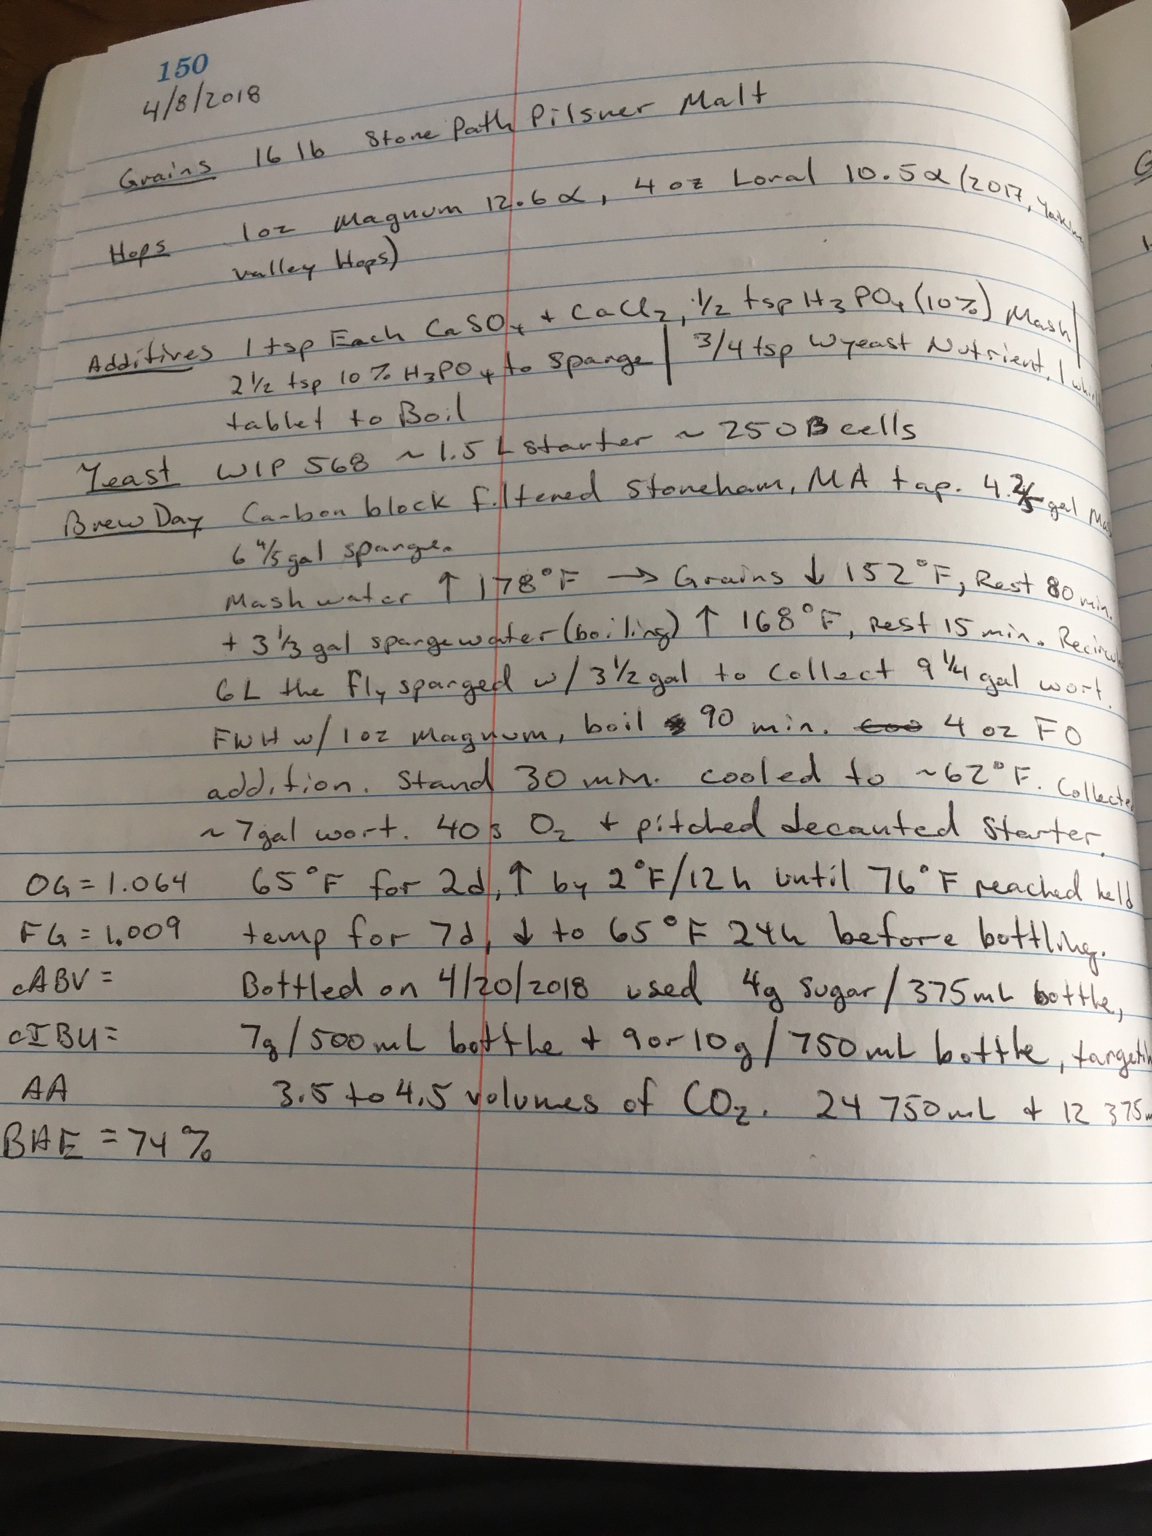 150
4/8/2018
Grains 16 lb Stone Path Pilsner Malt
Hops 1oz Magnum 12.6α, 4 oz Loral 10.5α (2017,
valley Hops)
Additives 1 tsp Each CaSO4 + CaCl2, 1/2 tsp H3PO4 (10%) Mash |
2 1/2 tsp 10% H3PO4 to Sparge | 3/4 tsp Wyeast Nutrient, 1
tablet to Boil
Yeast WLP 568 ~1.5 L starter ~ 250B cells
Brew Day Carbon block filtered Stoneham, MA tap. gal
6 4/5 gal sparge.
Mash water ↑ 178°F → Grains ↓ 152°F, Rest 80 min.
+ 3 1/3 gal sparge water (boiling) ↑ 168°F, rest 15 min.
6L the fly sparged w/ 3 1/2 gal to collect 9 1/4 gal wort.
FWH w/ 1oz Magnum, boil 90 min. 4 oz FO
addition. Stand 30 min. cooled to ~62°F. Collected
~7gal wort. 40s O2 + pitched decanted starter.
OG = 1.064 65°F for 2d, ↑ by 2°F/12h until 76°F reached held
FG = 1.009 temp for 7d, ↓ to 65°F 24h before bottling.
cABV = Bottled on 4/20/2018 used 4g sugar/375mL bottle,
cIBU = 7g/500mL bottle + 9 or 10g/750mL bottle,
AA 3.5 to 4.5 volumes of CO2. 24 750mL + 12 375
BHE = 74%
G